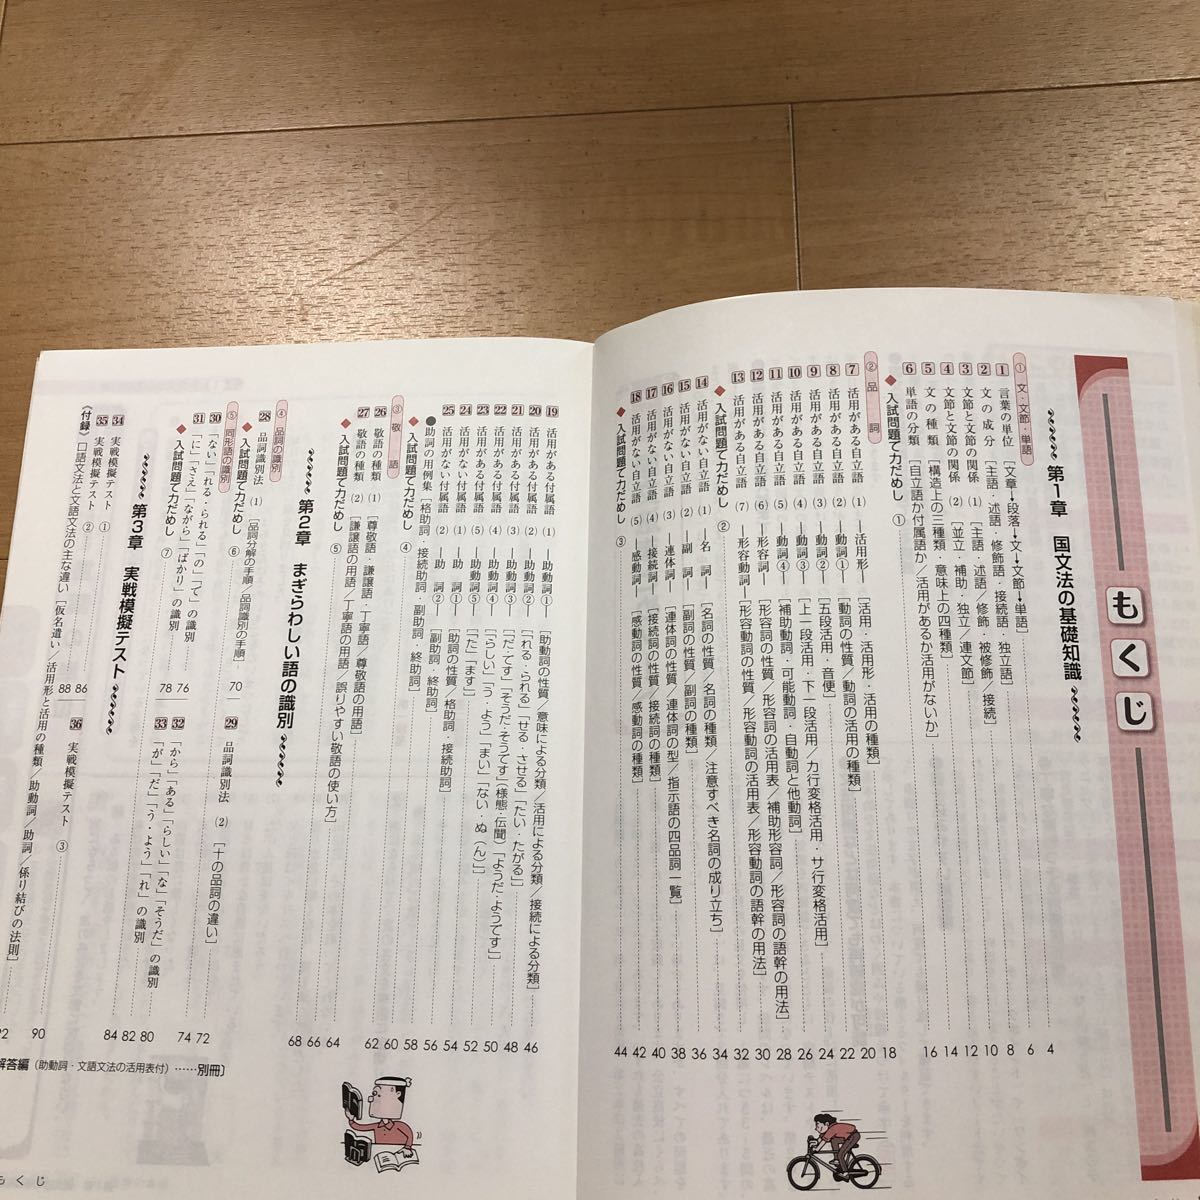 もくじ
第1章 国文法の基礎知識
① 文・文節・単語
1 言葉の単位 [文章→段落→文→文節→単語] 4
2 文の成分 [主語・述語・修飾語・接続語・独立語] 6
3 文節と文節の関係 (1) [主語・述語/修飾・被修飾/接続] 8
4 文節と文節の関係 (2) [並立・補助・独立/連文節] 10
5 文の種類 [構造上の三種類・意味上の四種類] 12
6 単語の分類 [自立語か付属語か/活用があるか活用がないか] 14
◆入試問題で力だめし ① 16
② 品詞
7 活用がある自立語 (1) ―活用形― [活用・活用形・活用の種類] 18
8 活用がある自立語 (2) ―動詞①― [動詞の性質/動詞の活用の種類] 20
9 活用がある自立語 (3) ―動詞②― [五段活用・音便] 22
10 活用がある自立語 (4) ―動詞③― [上一段活用・下一段活用/カ行変格活用・サ行変格活用] 24
11 活用がある自立語 (5) ―動詞④― [補助動詞・可能動詞・自動詞と他動詞] 26
12 活用がある自立語 (6) ―形容詞― [形容詞の性質/形容詞の活用表/補助形容詞/形容詞の語幹の用法] 28
13 活用がある自立語 (7) ―形容動詞― [形容動詞の性質/形容動詞の活用表/形容動詞の語幹の用法] 30
◆入試問題で力だめし ② 32
14 活用がない自立語 (1) ―名詞― [名詞の性質/名詞の種類/注意すべき名詞の成り立ち] 34
15 活用がない自立語 (2) ―副詞― [副詞の性質/副詞の種類] 36
16 活用がない自立語 (3) ―連体詞― [連体詞の性質/連体詞の型/指示語の四品詞一覧] 38
17 活用がない自立語 (4) ―接続詞― [接続詞の性質/接続詞の種類] 40
18 活用がない自立語 (5) ―感動詞― [感動詞の性質/感動詞の種類] 42
◆入試問題で力だめし ③ 44
19 活用がある付属語 (1) ―助動詞①― [助動詞の性質/意味による分類/活用による分類/接続による分類] 46
20 活用がある付属語 (2) ―助動詞②― [「れる・られる」「せる・させる」「たい・たがる」] 48
21 活用がある付属語 (3) ―助動詞③― [「だ・です」「そうだ・そうです」(様態・伝聞)「ようだ・ようです」] 50
22 活用がある付属語 (4) ―助動詞④― [「らしい」「う・よう」「まい」「ない・ぬ(ん)」] 52
23 活用がある付属語 (5) ―助動詞⑤― [「た」「ます」]
24 活用がない付属語 (1) ―助詞①― [助詞の性質/格助詞・接続助詞] 54
25 活用がない付属語 (2) ―助詞②― [副助詞・終助詞] 56
●助詞の用例集 [格助詞・接続助詞・副助詞・終助詞] 58
◆入試問題で力だめし ④
③ 敬語
26 敬語の種類 (1) [尊敬語・謙譲語・丁寧語/尊敬語の用語] 60
27 敬語の種類 (2) [謙譲語の用語/丁寧語の用語/誤りやすい敬語の使い方] 62
◆入試問題で力だめし ⑤ 64
第2章 まぎらわしい語の識別
④ 品詞の識別
28 品詞識別法 (1) [品詞分解の手順・品詞識別の手順] 70
29 品詞識別法 (2) [十の品詞の違い] 72
◆入試問題で力だめし ⑥ 74
⑤ 同形語の識別
30 「ない」「れる・られる」「の」「て」の識別 76
31 「に」「さえ」「ながら」「ばかり」の識別 78
32 「から」「ある」「らしい」「な」「そうだ」の識別 80
33 「が」「だ」「う・よう」「れ」の識別 82
◆入試問題で力だめし ⑦ 84
第3章 実戦模擬テスト
34 実戦模擬テスト ① 86
35 実戦模擬テスト ② 88
36 実戦模擬テスト ③ 90
《付録》口語文法と文語文法の主な違い [仮名遣い/活用形と活用の種類/助動詞/助詞/係り結びの法則]
解答編(助動詞・文語文法の活用表付)……別冊]
もくじ